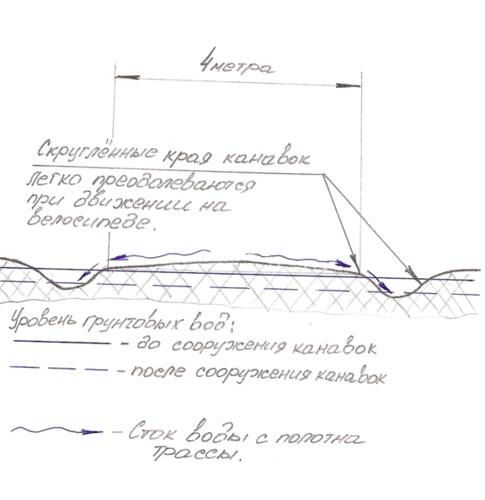 4 метра
Скруглённые края канавок
легко преодолеваются
при движении на
велосипеде.
Уровень грунтовых вод:
- до сооружения канавок
- после сооружения канавок
- Сток воды с полотна
трассы.